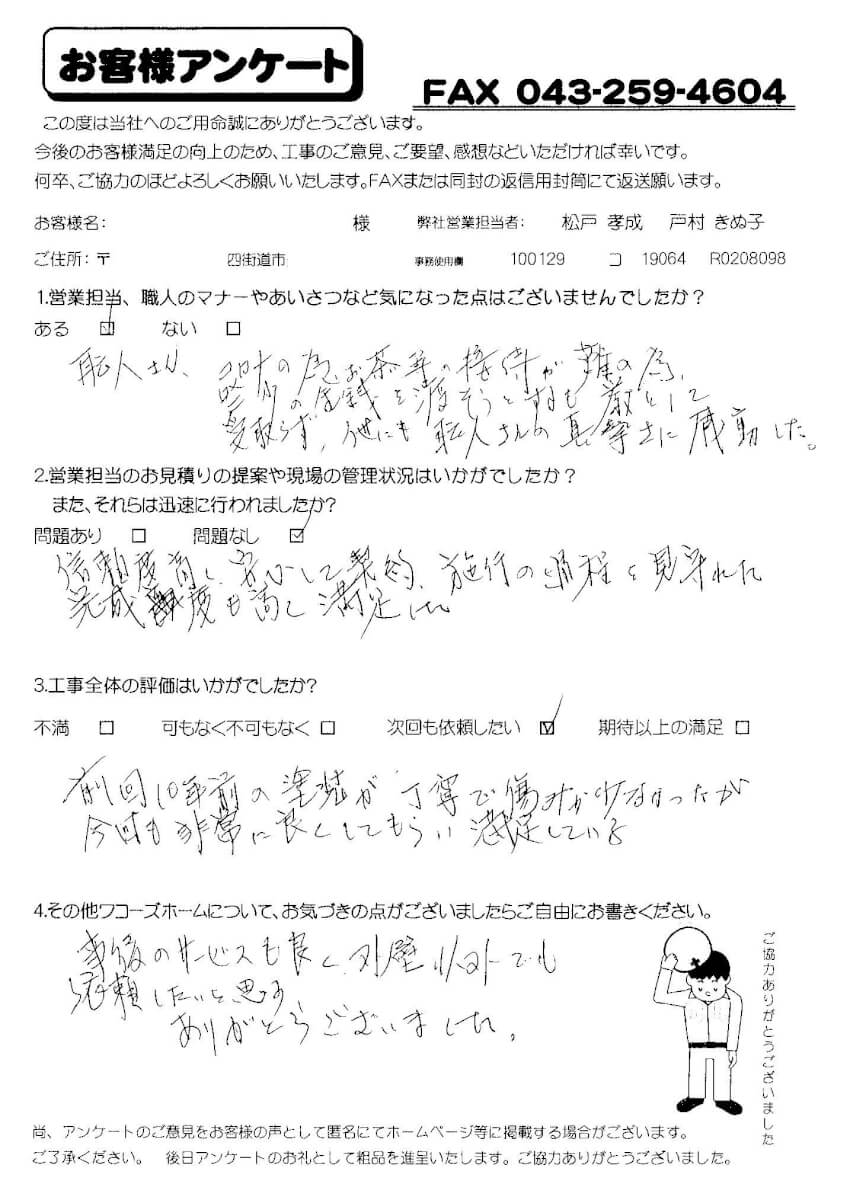 お客様アンケート
FAX 043-259-4604
この度は当社へのご用命誠にありがとうございます。
今後のお客様満足の向上のため、工事のご意見、ご要望、感想などいただければ幸いです。
何卒、ご協力のほどよろしくお願いいたします。FAXまたは同封の返信用封筒にて返送願います。
お客様名: 様 弊社営業担当者: 松戸 孝成 戸村 きぬ子
ご住所: 〒 四街道市 事務使用欄 100129 コ 19064 R0208098
1.営業担当、職人のマナーやあいさつなど気になった点はございませんでしたか?
ある ☑ ない □
職人さんが、コロナの為お茶等の接待が難の為、
の金銭を渡そうとするも厳として
受取らず、他にも職人さんの真摯さに感動した。
2.営業担当のお見積りの提案や現場の管理状況はいかがでしたか?
また、それらは迅速に行われましたか?
問題あり □ 問題なし ☑
信頼度高く、安心して契約、施行の過程を見守れた
完成度も高く満足した
3.工事全体の評価はいかがでしたか?
不満 □ 可もなく不可もなく □ 次回も依頼したい ☑ 期待以上の満足 □
前回10年前の塗装が丁寧で傷みが少なかったが
今回も非常に良くしてもらい満足している
4.その他ワコーズホームについて、お気づきの点がございましたらご自由にお書きください。
事後のサービスも良く、外壁 でも
依頼したいと思う。
ありがとうございました。
ご協力ありがとうございました
尚、アンケートのご意見をお客様の声として匿名にてホームページ等に掲載する場合がございます。
ご了承ください。 後日アンケートのお礼として粗品を進呈いたします。ご協力ありがとうございました。